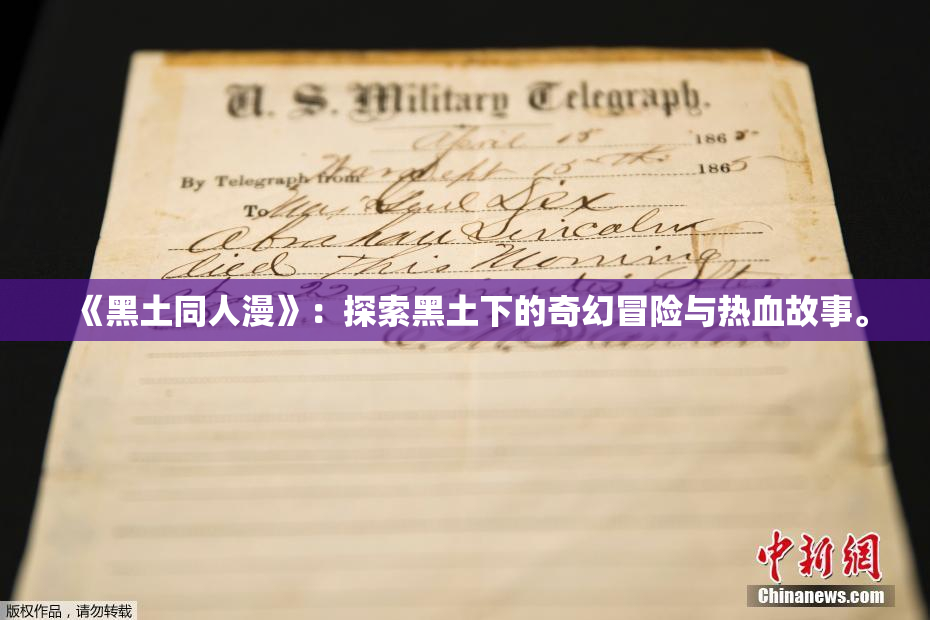 U. S. Military Telegraph.
April 15 1865
By Telegraph from War Dept 15th 1865
To Maj Genl Dix
Abraham Lincoln
died This Morning
22 minutes after
《黑土同人漫》：探索黑土下的奇幻冒险与热血故事。
E. M. Stanton
中新网
Chinanews.com
版权作品，请勿转载